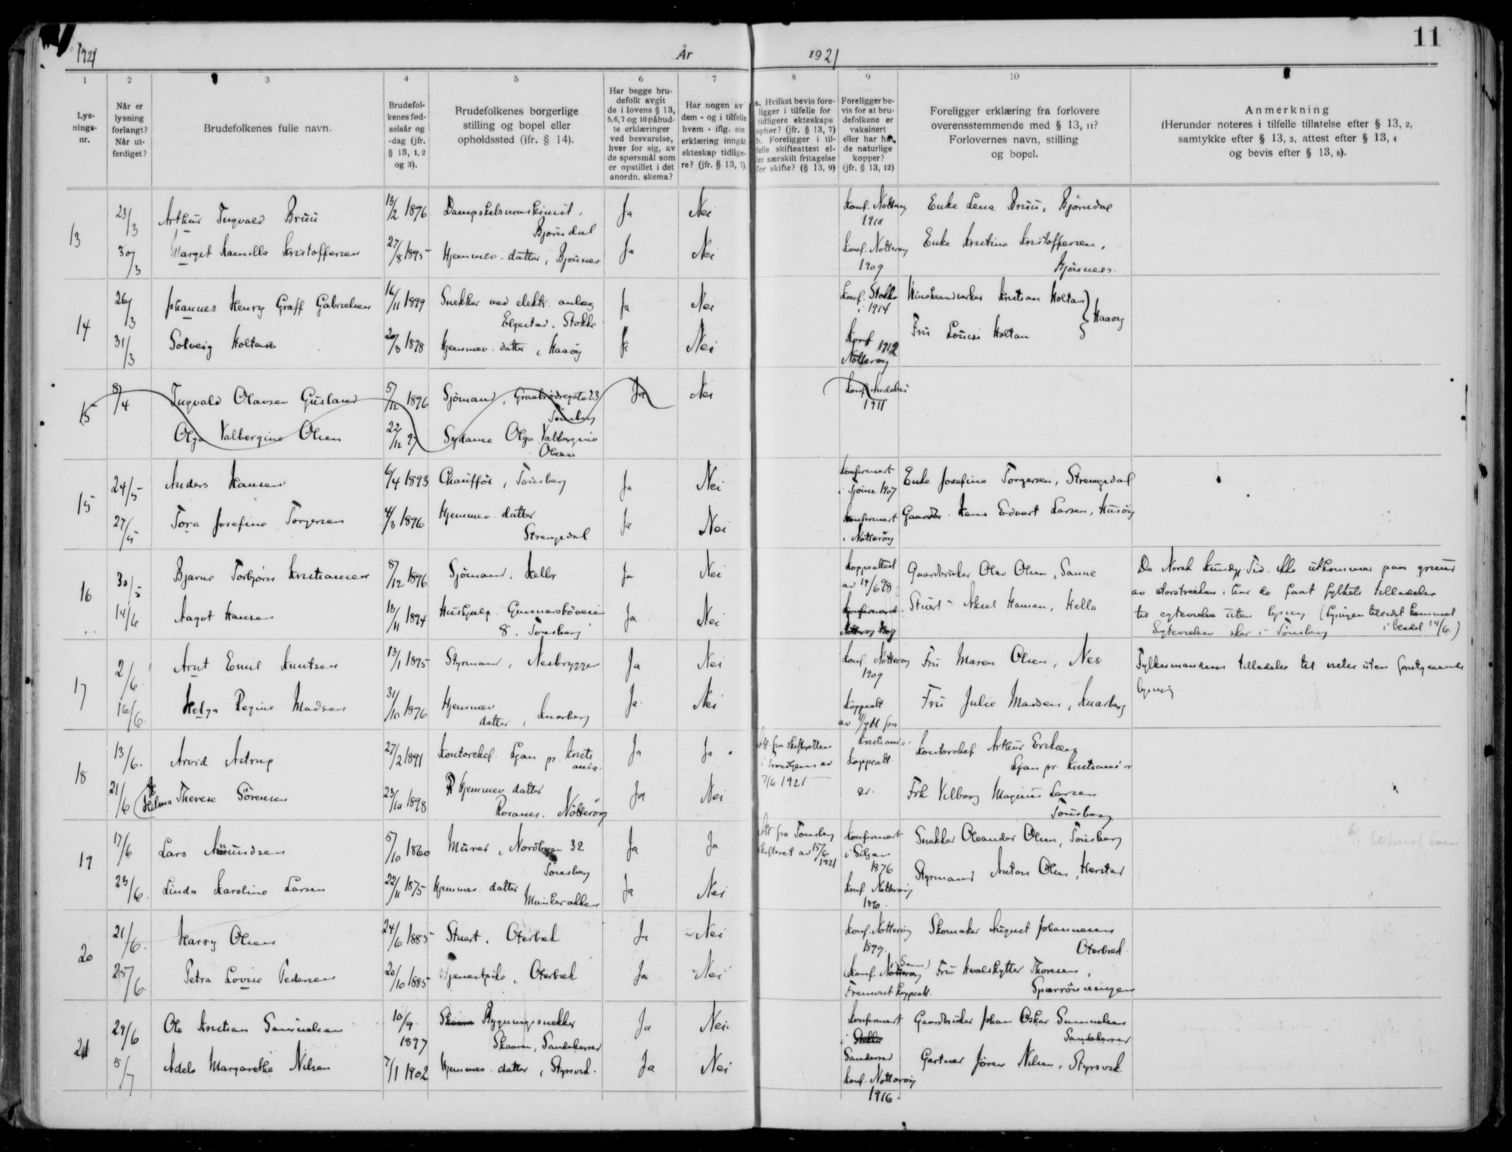 1921 År 1921 11
1 2 3 4 5 6 7 8 9 10
Lysnings-nr.
Når er lysning forlangt? Når utferdiget?
Brudefolkenes fulle navn.
Brudefolkenes fødselsår og -dag (jfr. § 13, 1, 2 og 3).
Brudefolkenes borgerlige stilling og bopel eller opholdssted (ifr. § 14).
Har begge brudefolk avgit de i lovens § 13, 5,6,7 og 10 påbudte erklæringer ved besvarelse, hver for sig, av de spørsmål som er opstillet i det anordn. skema?
Har nogen av dem - og i tilfelle hvem - iflg. sin erklæring inngått ekteskap tidligere? (jfr. § 13, 7).
a. Hvilket bevis foreligger i tilfelle for tidligere ekteskaps ophør? (jfr. § 13, 7) b. Foreligger i tilfelle skifteattest eller særskilt fritagelse for skifte? (§ 13, 9)
Foreligger bevis for at brudefolkene er vaksinert eller har hat de naturlige kopper? (jfr. § 13, 12)
Foreligger erklæring fra forlovere overensstemmende med § 13, 11? Forlovernes navn, stilling og bopel.
Anmerkning
(Herunder noteres i tilfelle tillatelse efter § 13, 2, samtykke efter § 13, 3, attest efter § 13, 4 og bevis efter § 13, 8).
13 23/3 Arthur Ingvald Bruu 13/2 1876 Bjørndal Ja Nei Konf. Nøtterøy 1910 Enke Lena Bruu, Bjørndal
30/3 Margit Kamilla Kristoffersen 27/8 1895 Hjemmev. datter, Bjønnes Ja Nei Konf. Nøtterøy 1909 Enke Kristine Kristoffersen, Bjønnes
14 26/3 Johannes Henry Graff Gabrielsen 16/11 1899 Snekker ved elektr. anlæg Stokke Ja Nei Konf. Stokke 1914 Kristian Holtan
31/3 Solveig Holtan Hjemmev. datter, Haaøy Ja Nei Konf 1912 Nøtterøy Fru Louise Holtan } Haaøy
15 8/4 Ingvald Olavsen Gusland 5/12 1896 Sjømand, Graabrødregate 23 Tønsberg Ja Nei Konf. Andebu 1911
Olga Valbergine Olsen 22/12 97 Sydame Olga Valbergine Olsen
15 24/5 Anders Hansen 6/4 1893 Chauffør, Tønsberg Ja Nei Konfirmert i Tjøme 1907 Enke Josefine Torgersen, Strengsdal
27/5 Tora Josefine Torgersen 4/8 1896 Hjemmev. datter Strengsdal Ja Nei Konfirmert i Nøtterøy Gaardbr. Hans Edvart Larsen, Husøy
16 30/5 Bjarne Torbjørn Kristiansen 8/12 1896 Sjømand, Hella Ja Nei Koppeattest av 19/6 98 Gaardbruker Olav Olsen, Sanne
14/6 Aagot Hansen 13/11 1894 Hushjelp. Gunnarsbøveien 8. Tønsberg Ja Nei Stuert Hansen, Hella
Da Norsk Kundgj. Tid. ikke utkommer paa grund av storstreiken, har de faat fylkets tilladelse til egtevielse uten lysning (lysningen tilsendt kommet i beaktet 14/6.) Egtevielsen sker i Tønsberg
17 2/6 Arnt Emil Knutsen 13/1 1895 Styrmand, Nesbrygga Ja Nei Konf. Nøtterøy 1909 Fru Maren Olsen, Nes
16/6 Helga Regine Madsen 31/10 1896 Hjemmev. datter, Knarberg Ja Nei Koppeatt. Fru Julie Madsen, Knarberg
Fylkesmandens tilladelse til vielse uten foregaaende lysning
18 13/6. Arvid Astrup 27/2 1891 Kontorchef. Ljan pr. Kristiania Ja Ja Att fra skifteretten 7/6 1921 Koppeatt. Kontorchef Arthur Ljan pr. Kristiania
21/6 Hilma Therese Sørensen 23/10 1898 Hjemmev. datter Rosanes. Nøtterøy Ja Nei Frk Vilborg Magnus Larsen Tønsberg
19 17/6 Lars Amundsen 5/10 1860 Murer, Nordbyen 32 Tønsberg Ja Ja Att fra Tønsberg skifteret av 15/6 1921 Konfirmert i Siljan 1876 Snekker Oleander Olsen, Tønsberg
23/6. Linda Karoline Larsen 22/11 1875 Hjemmev. datter Munkerekken Ja Nei Konf. Nøtterøy 1890. Styrmand Anton Olsen, Herstad
20 21/6. Harry Olsen 24/6 1885 Stuert. Oterbek Ja Nei Konf. Nøtterøy 1899. Skomaker August Johannessen Oterbæk
25/6 Petra Lovise Pedersen 20/10 1885 Tjenestpike, Oterbek Ja Nei Konf. Nøtterøy (i Sem) Fremvist koppeatt. Fru Hvalskytter Thoresen,
21 29/6 Ole Kristian Samuelsen 10/9. 1897 Bygningssnekker Skaaren, Sandeherred Ja Nei Konfirmert Sandeherred Gaardbruker Johan Oskar Samuelsen Sandeherred
5/7 Adele Margarethe Nilsen 7/1 1902 Hjemmev. datter, Styrsvik Ja Nei Konf. Nøtterøy 1916. Gartner Jørgen Nilsen, Styrsvik